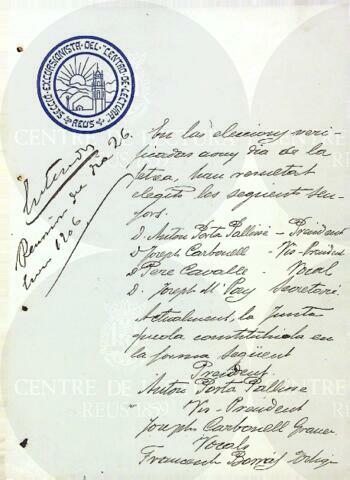 SECCIO EXCURSIONISTA DEL "CENTRO DE LECTURA"
REUS
Enterado
Reunion del dia 26.
1906
En las eleccions veri-
ficadas avuy dia de la
fetxa, han resultat
elegits los seguents sen-
yors:
D. Anton Porta Pallisé - President
D. Joseph Carbonell - Vis-President
D. Pere Cavallé - Vocal
D. Joseph Mª Secretari.
Actualment, la junta
queda constituida en
la forma següent
President
Anton Porta Pallisé
Vis-President
Joseph Carbonell
Vocals
Francesch
CENTRE DE LECTURA
REUS 1859